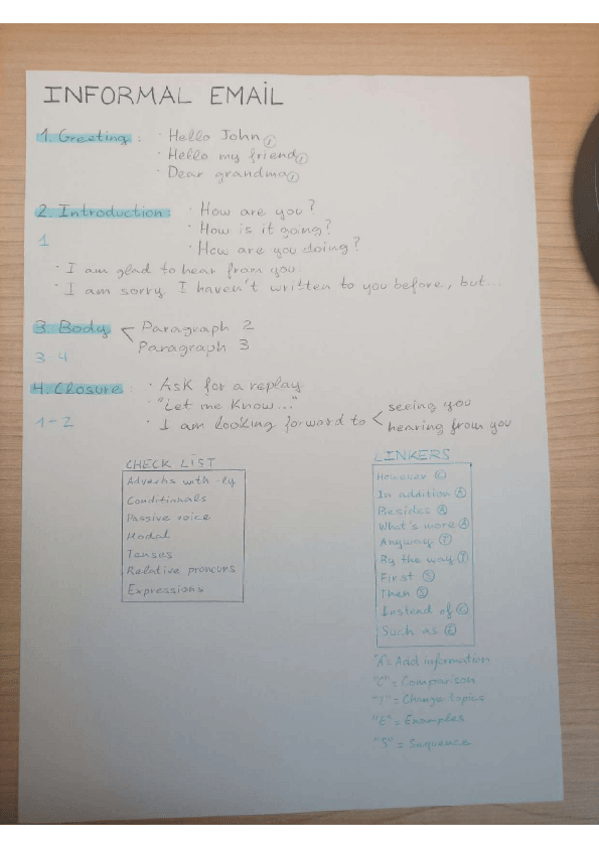 INFORMAL EMAIL
1. Greeting : · Hello John ,
· Hello my friend ,
· Dear grandma ,
2. Introduction: · How are you?
1 · How is it going?
· How are you doing?
· I am glad to hear from you
· I am sorry I haven't written to you before, but...
3. Body < Paragraph 2
3-4 Paragraph 3
4. Closure : · Ask for a replay
· "Let me know..."
1-2 · I am looking forward to < seeing you
hearing from you
CHECK LIST
Adverbs with -ly
Conditinnals
Passive voice
Modal
Tenses
Relative pronouns
Expressions
LINKERS
However C
In addition A
Besides A
What's more A
Anyway T
By the way T
First S
Then S
Instead of C
Such as E
"A" = Add information
"C" = Comparison
"T" = Change topics
"E" = Examples
"S" = Sequence